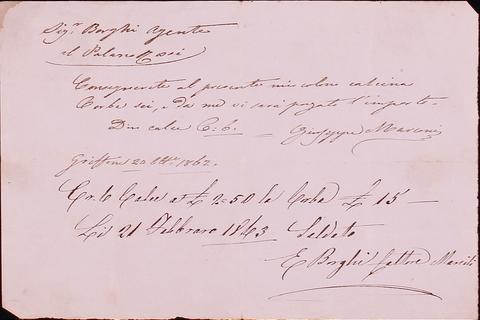 Sig.r Borghi Agente
al Palazzo Rossi
Consegnerete al presente muratore calcina
Corbe sei, e da me vi sarà pagato l'importo.
Dico calce C: 6. Giuseppe Marconi
Griffone 20 Ott.e 1862.
Cor. 6 Calce at £ 2=50 la Corba £ 15 —
Lì 21 Febbraro 1863 Saldato
E Borghi fattore Marsili